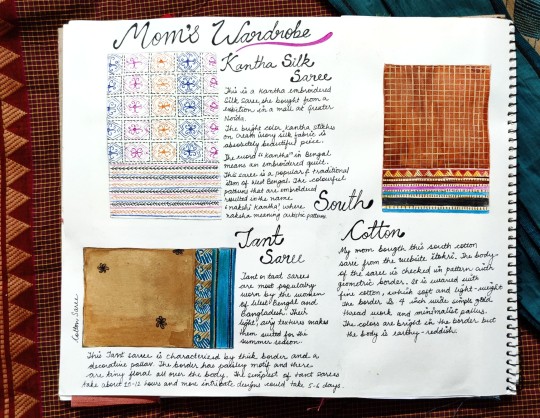 Mom's Wardrobe
Kantha Silk
Saree
This is a Kantha embroidered
Silk Saree, she bought from a
exibition in a mall at Greater
Noida.
The bright color Kantha stitches
on cream ivory silk fabric is
absolutely beautiful piece.
The word "Kantha" in Bengal
means an embroidered quilt.
This saree is a popular & traditional
item of West Bengal. The colourful
patterns that are embroidered
resulted in the name
'nakshi Kantha' where
naksha meaning artistic pattern.
South
Cotton
My mom bougth this south cotton
saree from the website itokri. The body
of the saree is checked in pattern with
giometric border. It is weaved with
fine cotton, which soft and light-weight
the border is 4 inch wide single ghter
thread work and minimalist pallus.
The colors are bright in the border but
the body is earthy-reddish.
Tant
Saree
Tant or taat sarees
are most popularly
worn by the women
of West Bengal and
Bangladesh. Their
light, airy textures makes
them suited for the
summer season.
Cotton Saree
This Tant saree is characterized by thick border and a
decorative pallav. The border has paisley motif and there
are tiny floral all over the body. The simplest of tant sarees
take about 10-12 hours and more intricate designs could take 5-6 days.